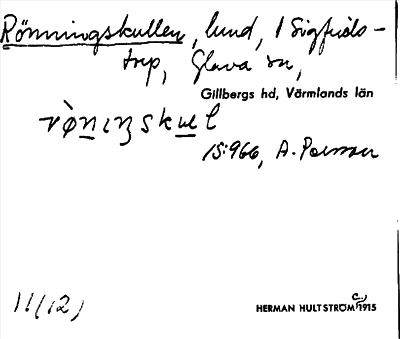 Rönningskullen, lund, 1 Sigfrids-
trp, Glava sn,
Gillbergs hd, Värmlands län
rø̀nıŋskul
15:966, A. Persson
11(12)
HERMAN HULTSTRÖM C:a 1915